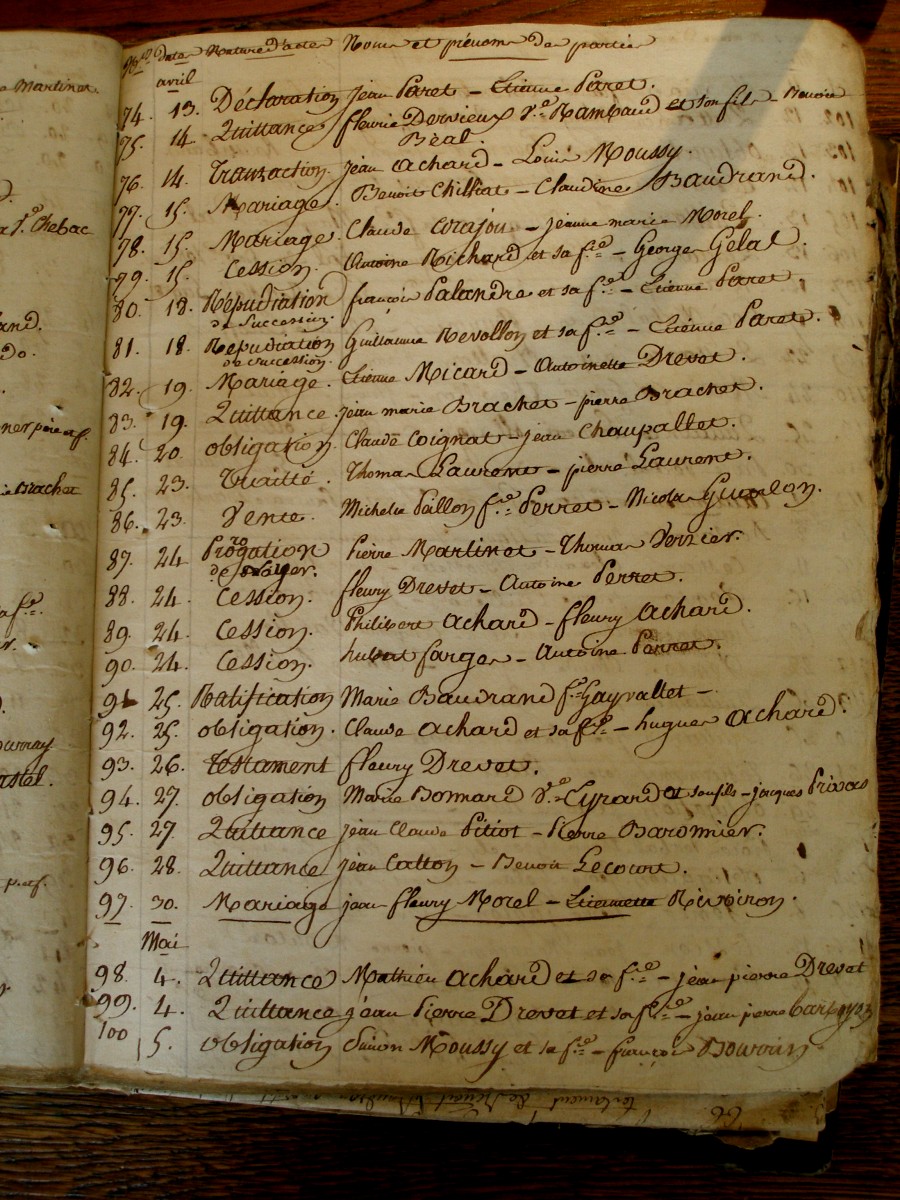 Martinat
Chebac
Brachet
N.os date Nature d'acte Noms et prénoms des parties
avril
74. 13. Déclaration Jean Paret - Etienne Paret.
75. 14 Quittance fleurie Dervieux V.e Rambaud et son fils - Benoit
Béal.
76. 14. Tranzaction. Jean Achard - Louis Moussy.
77. 15. Mariage. Benoit Chilliat - Claudine Baudrand.
78. 15. Mariage. Claude Corajou - Jeanne marie Morel.
79. 15. Cession. Antoine Richard et sa f.e - George Gélat.
80. 18. Répudiation françois Palandre et sa f.e - Etienne Parret.
de succession.
81. 18 Répudiation Guillaume Revollon et sa f.e - Etienne Paret.
de succession.
82. 19. Mariage. Etienne Micard - Antoinette Drevet.
83. 19. Quittance. jean marie Brachet - pierre Brachet.
84. 20. obligation. Claude Coignat - jean Chaupallet.
85. 23. Traitté. Thomas Laurent - pierre Laurent.
86. 23. Vente. Michelle Paillon f.e Perret - Nicolas
87. 24 Prorogation Pierre Martinot - Thomas Verzier.
de
88. 24. Cession. fleury Drevet - Antoine Perret.
89. 24. Cession. Philibert Achard - fleury Achard.
90. 24. Cession. hubert farge - Antoine Perret.
91 25. Ratification Marie Baudrand f.e Gayvallet -
92. 25. obligation. Claude Achard et sa f.e - hugues Achard.
93. 26. Testament fleury Drevet.
94. 27. obligation Marie Bonnard V.e Cyrard et son fils - jacques Privas
95. 27. Quittance jean Claude Pitiot - Pierre Baromier.
96. 28. Quittance jean Catton - Benoit Lecourt.
97. 30. Mariage jean fleury Morel - Etiennette Rivoiron.
Mai
98. 4. Quittance Mathieu Achard et sa f.e - jean pierre Drevet
99. 4. Quittance jean Pierre Drevet et sa f.e - jean pierre
100 5. obligation Simon Moussy et sa f.e - françois Bourrin